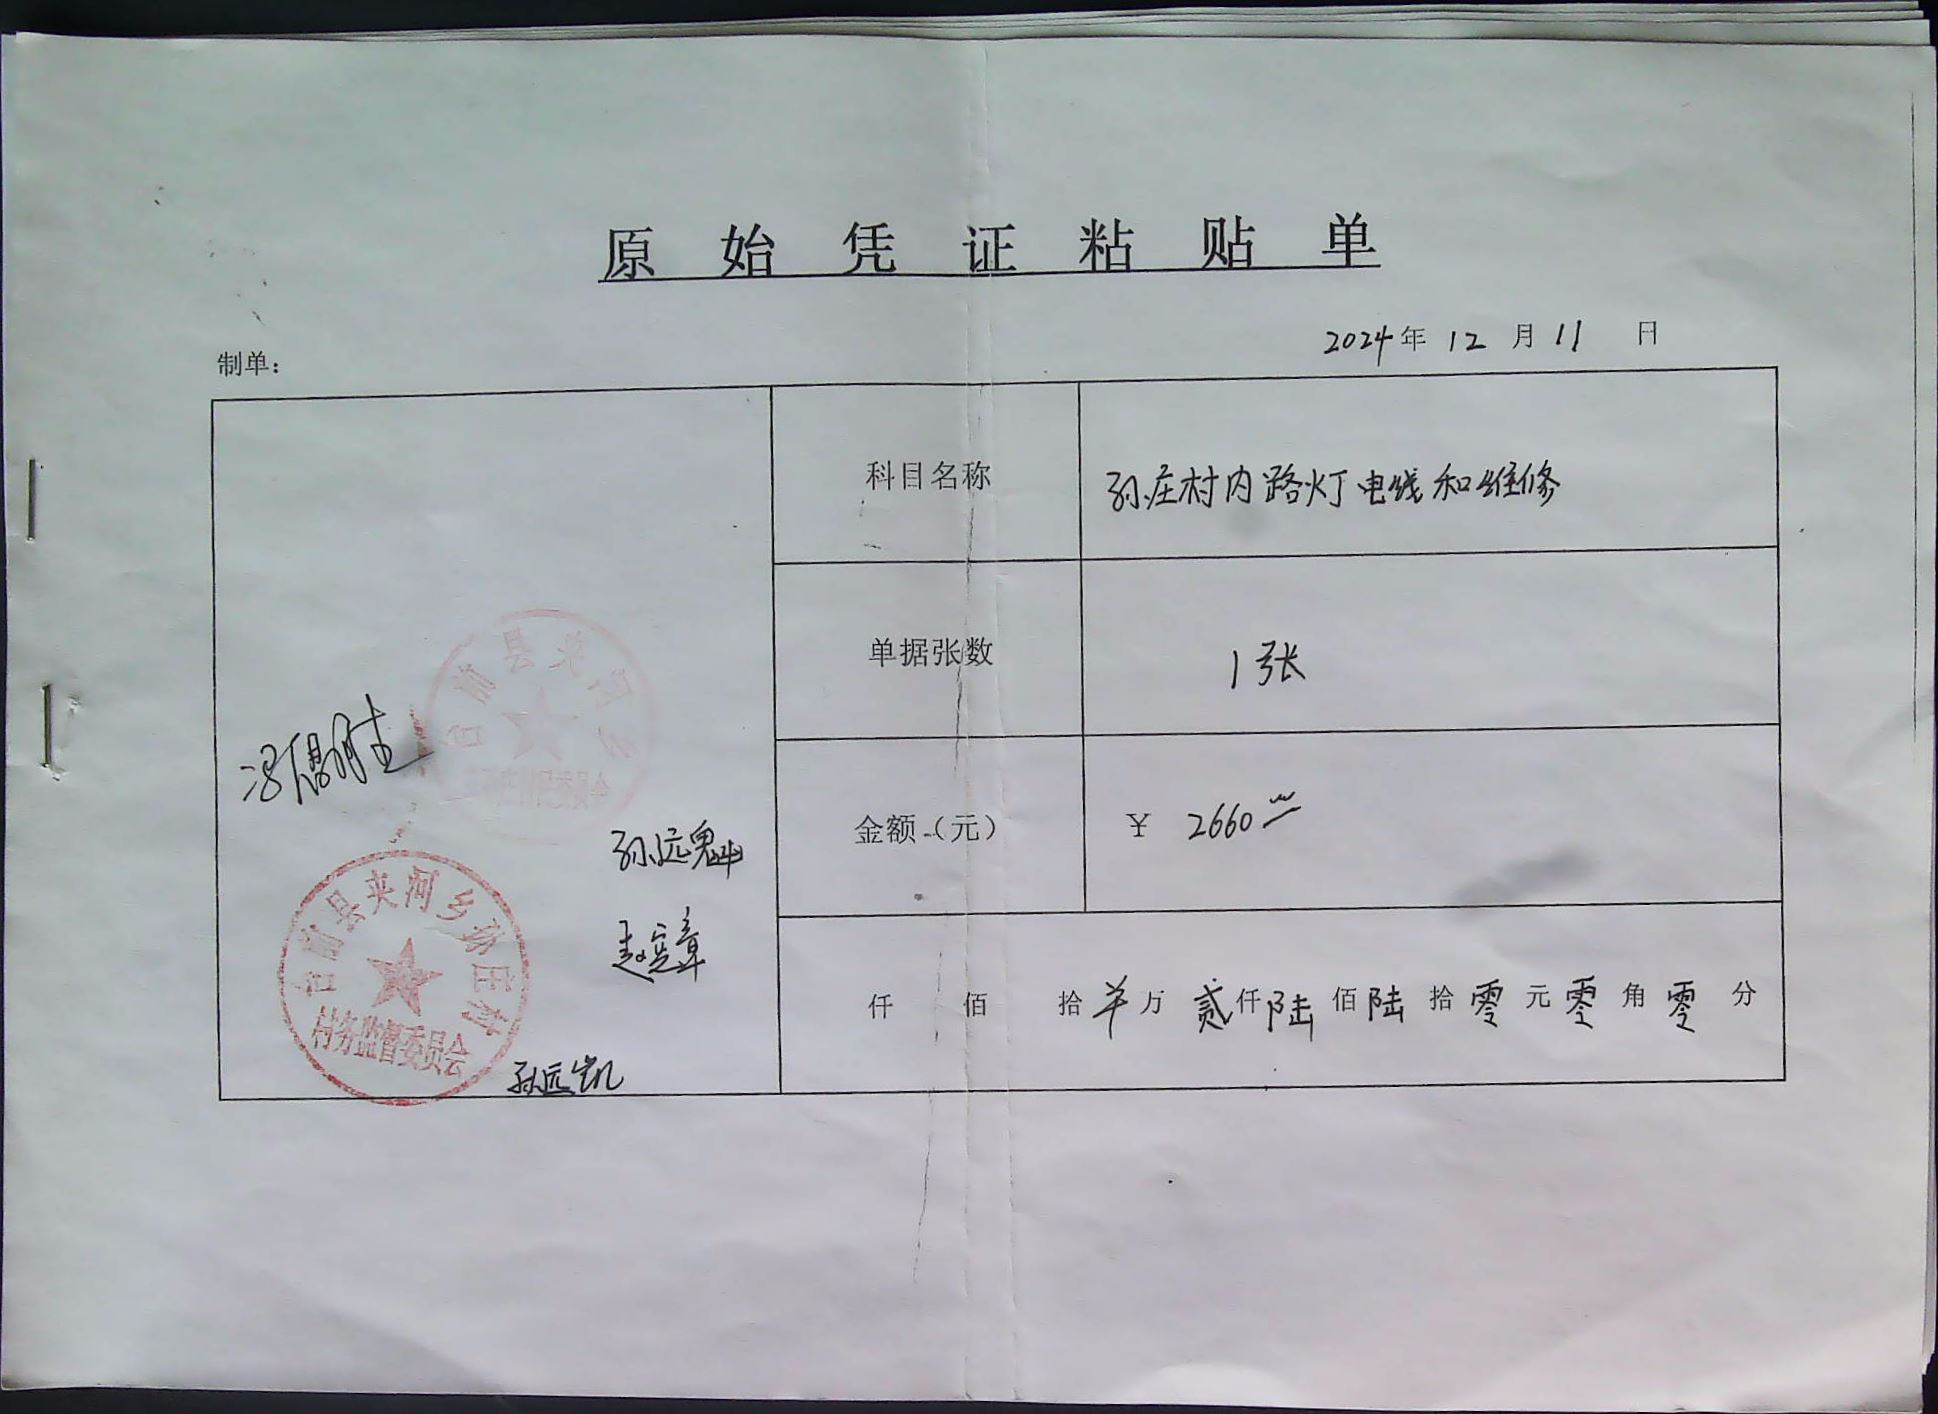 原始凭证粘贴单
2024年12月11日
制单：
科目名称
孙庄村内路灯电线和维修
单据张数
1张
金额（元）
¥ 2660
仟佰拾羊万贰仟陆佰陆拾零元零角零分
孙远魁
赵宪章
孙远凯
台前县夹河乡孙庄村
村务监督委员会